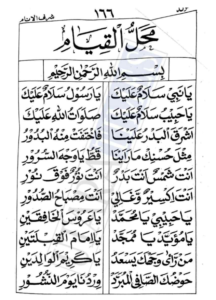 شرف الانام
١٦٦
محل القيام
بسم الله الرحمن الرحيم
يا نبي سلام عليك يا رسول سلام عليك
يا حبيب سلام عليك صلوات الله عليك
اشرق البدر علينا فاختفت منه البدور
مثل حسنك ما رأينا قط يا وجه السرور
انت شمس انت بدر انت نور فوق نور
انت اكسير وغالي انت مصباح الصدور
يا حبيبي يا محمد يا عروس الخافقين
يا مؤيد يا ممجد يا امام القبلتين
من رأى وجهك يسعد يا كريم الوالدين
حوضك الصافي المبرد وردنا يوم النشور